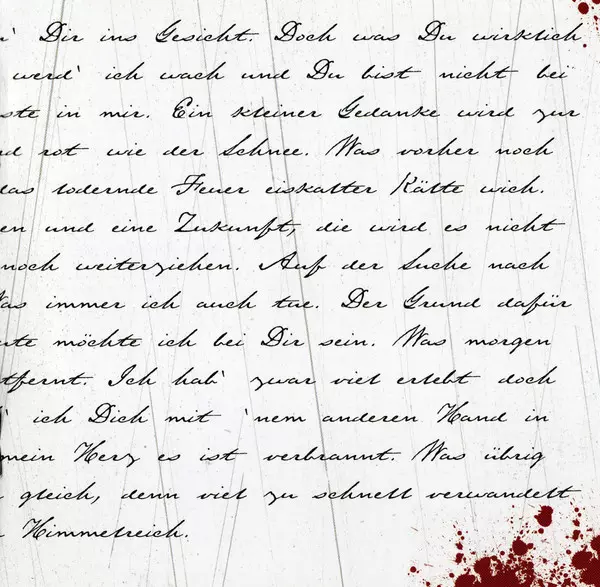 ' Dir ins Gesicht. Doch was Du wirklich
werd` ich wach und Du bist nicht bei
ste in mir. Ein kleiner Gedanke wird zur
d rot wie der Schnee. Was vorher noch
das lodernde Feuer eiskalter Kälte wich.
en und eine Zukunft, die wird es nicht
noch weiterziehen. Auf der Suche nach
Was immer ich auch tue. Der Grund dafür
ute möchte ich bei Dir sein. Was morgen
tfernt. Ich hab` zwar viel erlebt doch
` ich Dich mit `nem anderen Hand in
mein Herz es ist verbrannt. Was übrig
gleich, denn viel zu schnell verwandelt
Himmelreich.